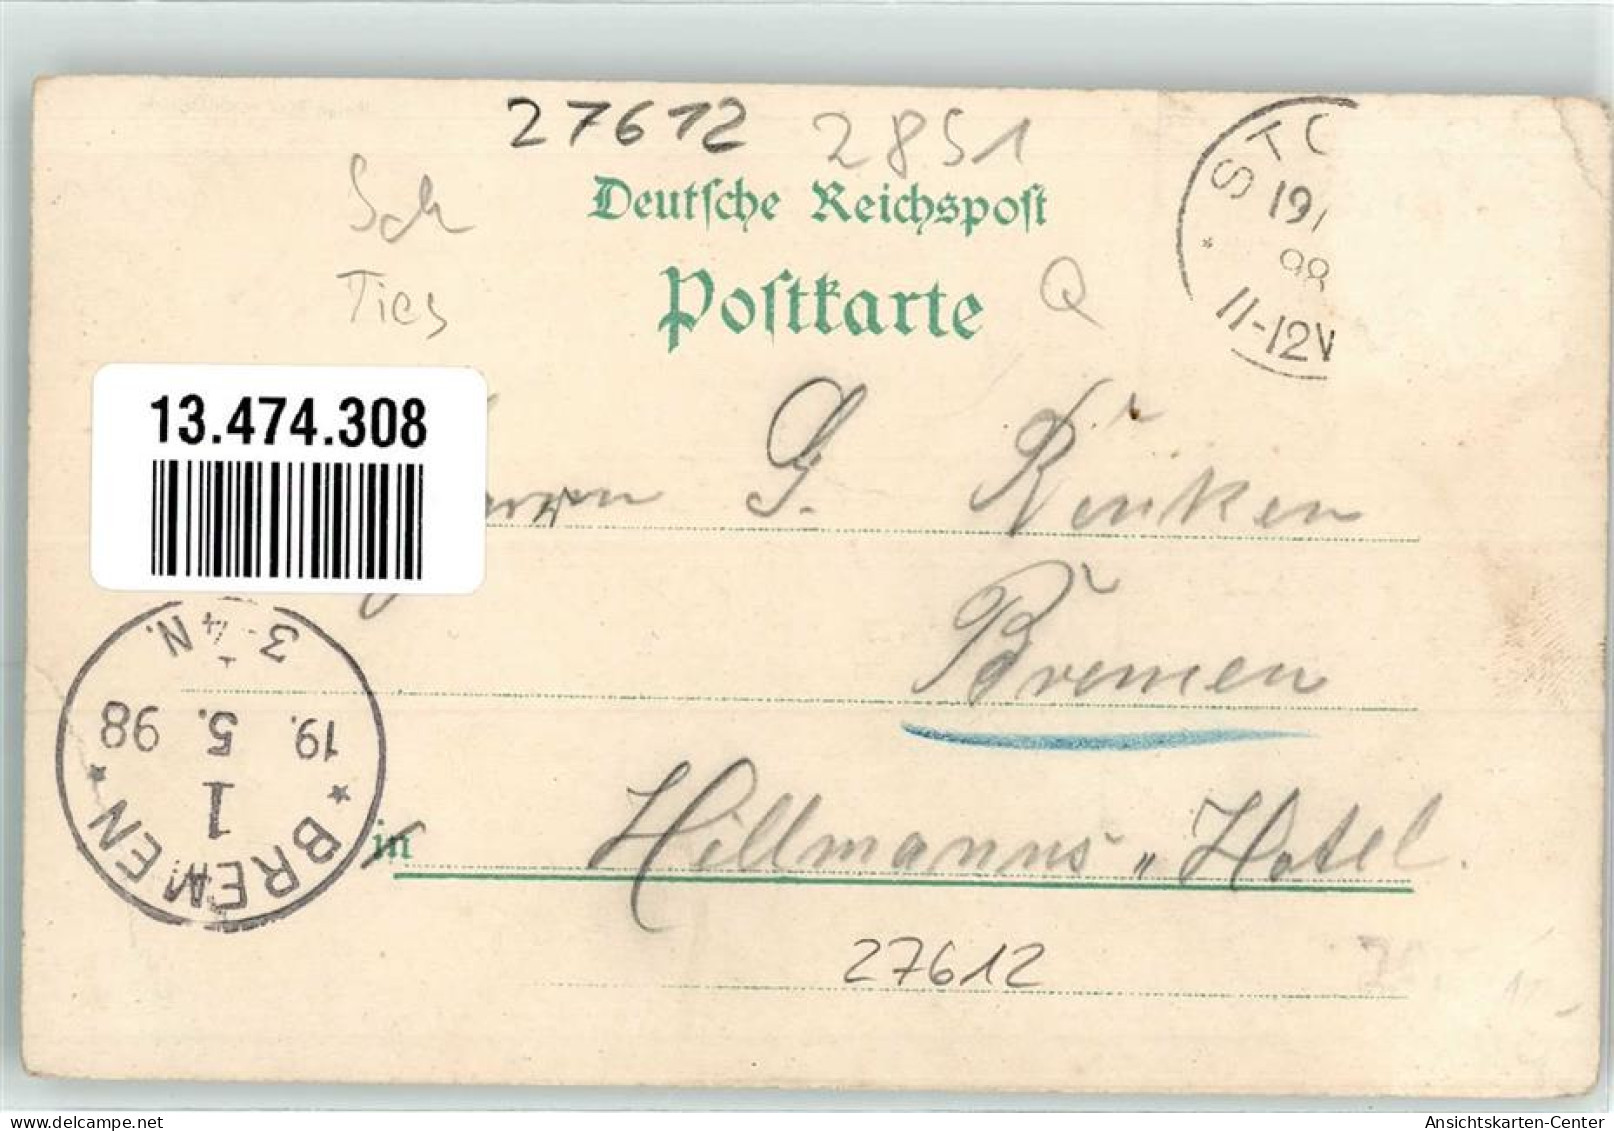 27612 2851
Sch
Deutsche Reichspost
STO
19/
98
11-12V
Ties
Postkarte
Q
13.474.308
G. Rinken
Bremen
3-4 N.
19. 5. 98
1
* BREMEN *
in Hillmanns „ Hotel.
27612
delcampe.net
Ansichtskarten-Center